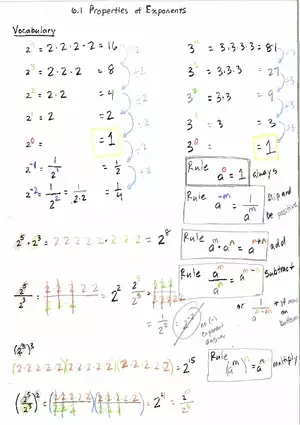 6.1 Properties of Exponents
Vocabulary
2⁴ = 2·2·2·2 = 16
÷2
2³ = 2·2·2 = 8
÷2
2² = 2·2 = 4
÷2
2¹ = 2 = 2
÷2
2⁰ = = 1
÷2
2⁻¹ = 1/2¹ = 1/2
÷2
2⁻² = 1/2² = 1/2·2 = 1/4
3⁴ = 3·3·3·3 = 81
÷3
3³ = 3·3·3 = 27
÷3
3² = 3·3 = 9
÷3
3¹ = 3 = 3
÷3
3⁰ = = 1
Rule a⁰ = 1 always
Rule a⁻ᵐ = 1/aᵐ flip and be positive
2⁵·2³ = 2·2·2·2·2·2·2·2 = 2⁸
Rule aᵐ·aⁿ = aᵐ⁺ⁿ add
2⁵/2³ = 2·2·2·2·2/2·2·2 = 2²
2³/2⁵ = 2·2·2/2·2·2·2·2
= 1/2² = 2⁻²
no (-) exponent answer
Rule aᵐ/aⁿ = aᵐ⁻ⁿ Subtract
or 1/aⁿ⁻ᵐ
on bottom
(2⁵)³
(2·2·2·2·2)(2·2·2·2·2)(2·2·2·2·2) = 2¹⁵
Rule (aᵐ)ⁿ = aᵐⁿ multiply
(2⁵/2³)² = (2·2·2·2·2/2·2·2)(2·2·2·2·2/2·2·2) = 2⁴ = 2¹⁰/2⁶